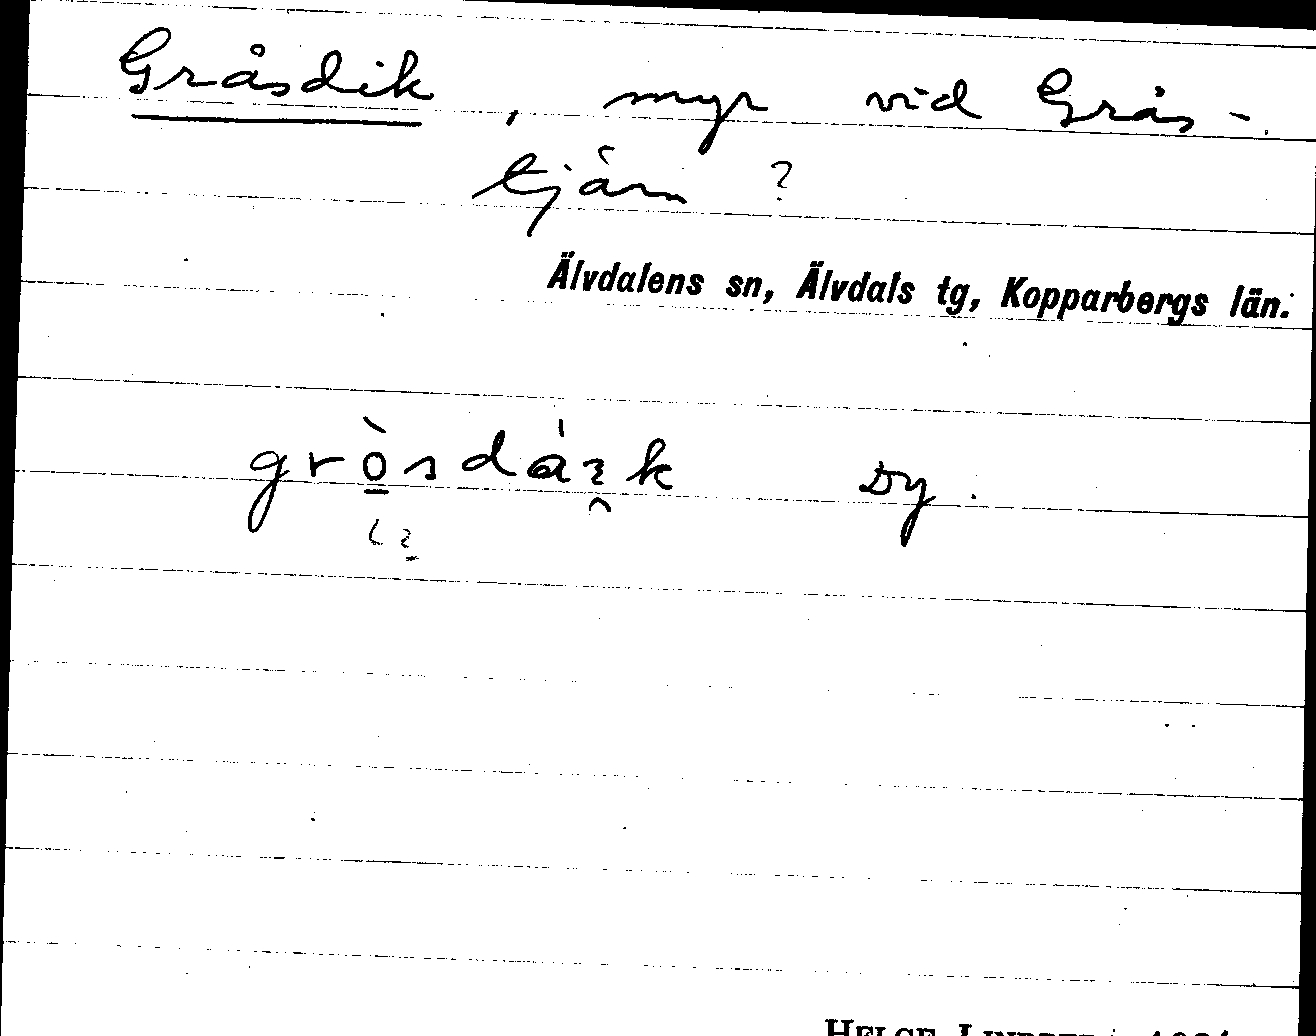 Gråsdik, myr vid Grås-
tjärn ?
Älvdalens sn, Älvdals tg, Kopparbergs län.
Dy.
HELGE